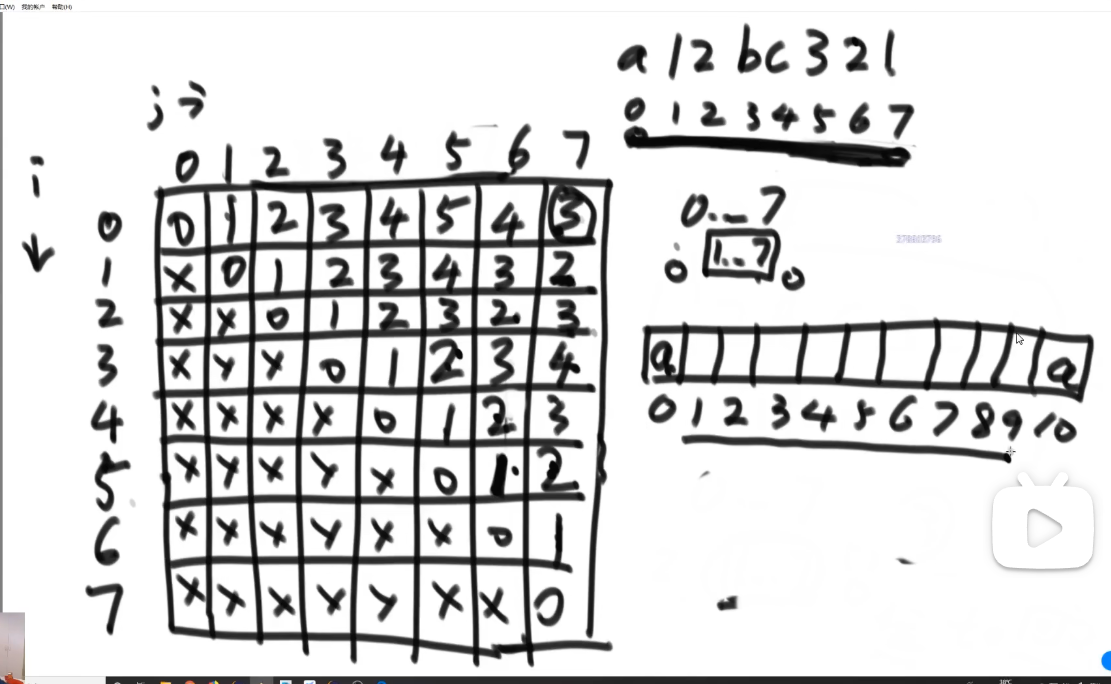 (W) 我的帐户 帮助(H)
a 1 2 b c 3 2 1
0 1 2 3 4 5 6 7
j →
i ↓
0 1 2 3 4 5 6 7
0 0 1 2 3 4 5 4 3
1 x 0 1 2 3 4 3 2
2 x x 0 1 2 3 2 3
3 x x x 0 1 2 3 4
4 x x x x 0 1 2 3
5 x x x x x 0 1 2
6 x x x x x x 0 1
7 x x x x x x x 0
0...7
0 1..7 0
a a
0 1 2 3 4 5 6 7 8 9 10